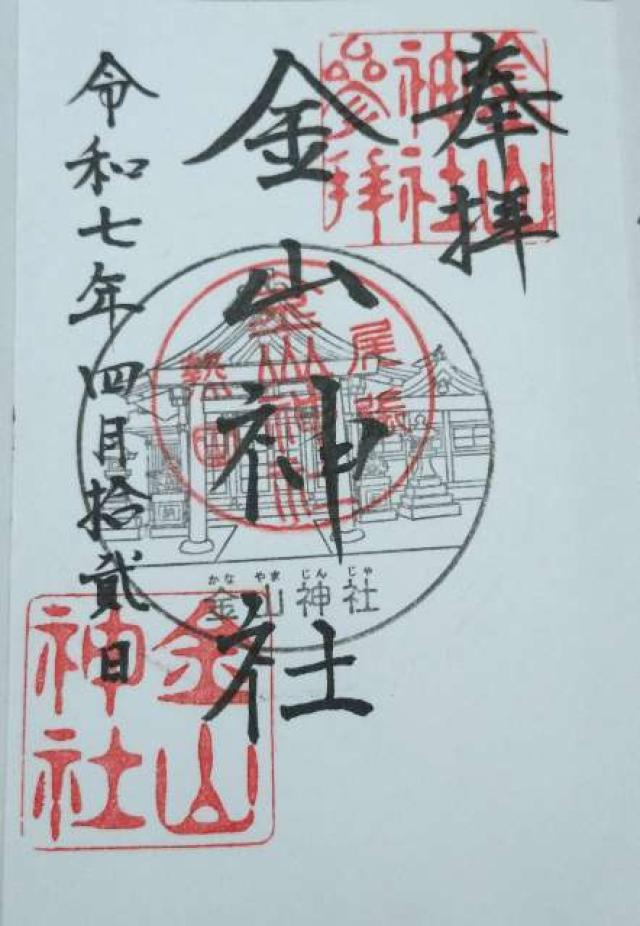 奉拝
金山神社参拝
金山神社
尾張
熱田
金山神社
かなやまじんじゃ
金山神社
令和七年四月拾貳日
金山神社